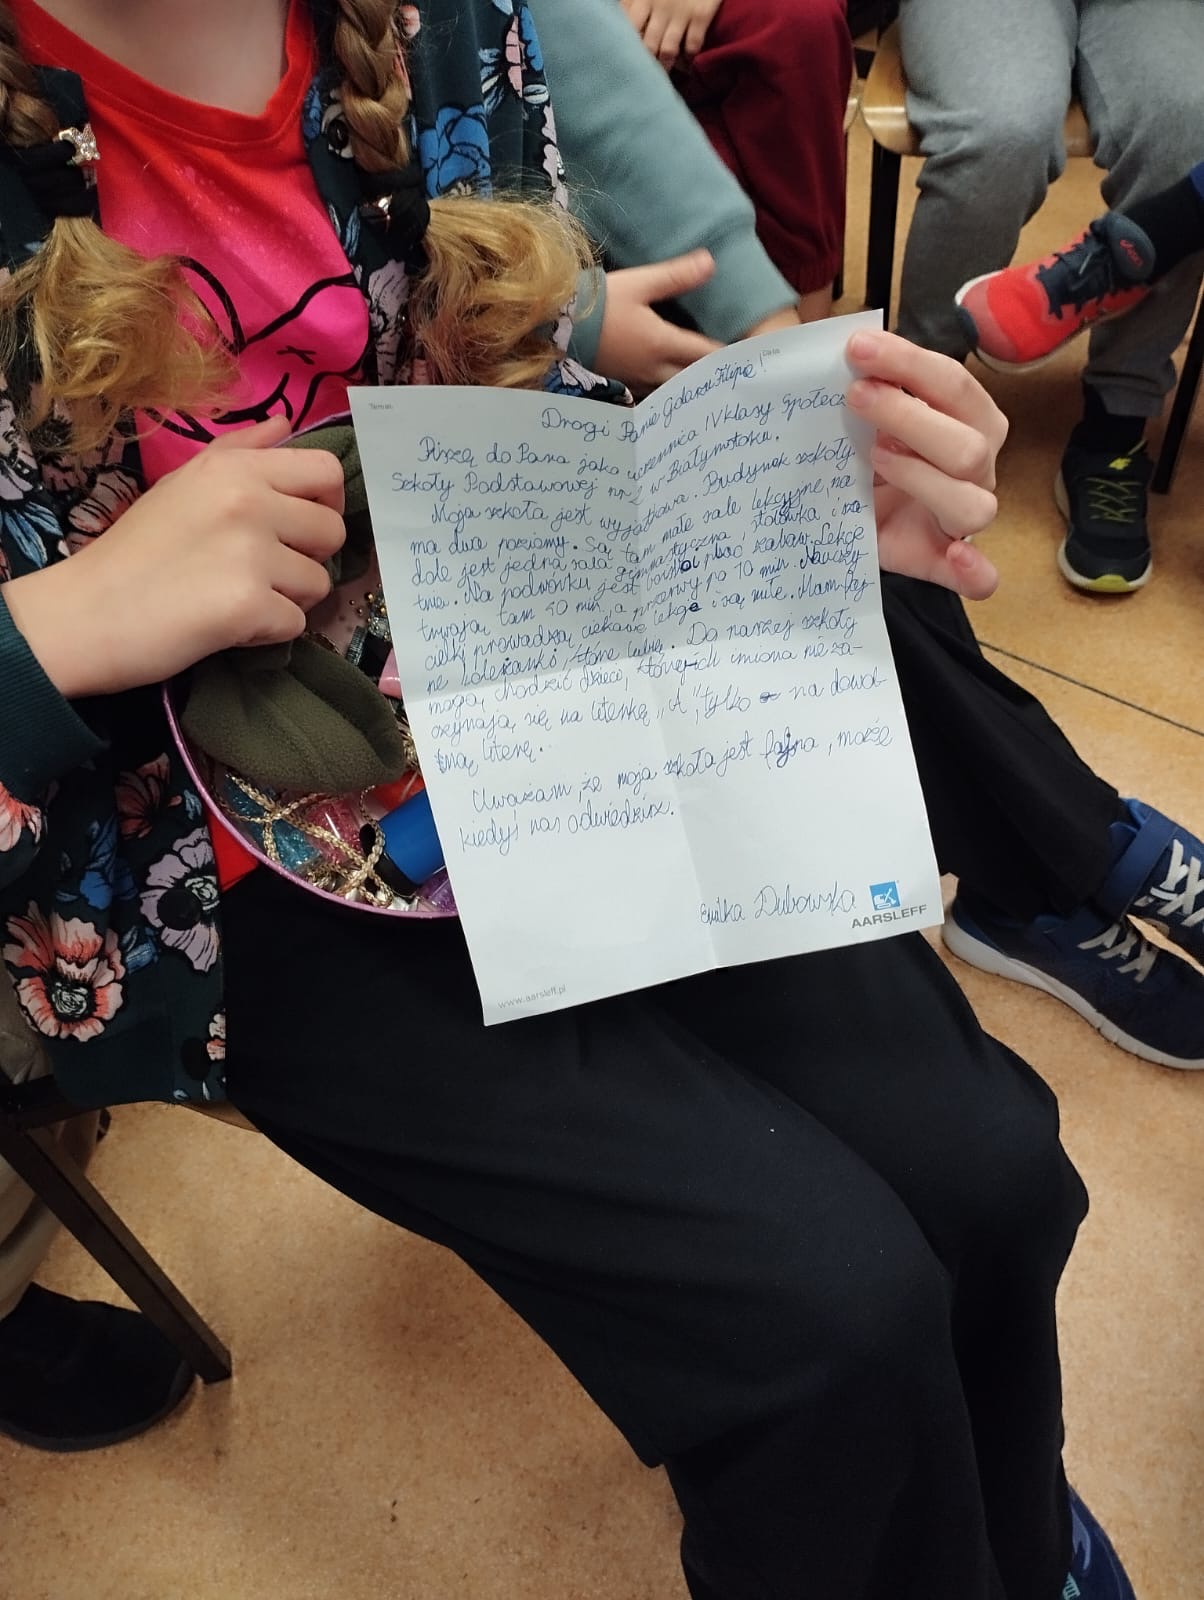 Temat
Data
Drogi Panie Golarzu Filipie!
Piszę do Pana jako uczennica IV klasy Społecz
Szkoły Podstawowej nr 2 w Białymstoku.
Moja szkoła jest wyjątkowa. Budynek szkoły
ma dwa poziomy. Są tam małe sale lekcyjne, na
dole jest jedna sala gimnastyczna, stołówka i sza-
tnia. Na podwórku jest plac zabaw. Lekcje
trwają tam 40 min, a przerwy po 10 min. Nauczy-
cielki prowadzą ciekawe lekcje i są miłe. Mam faj-
ne koleżanki, które lubię. Do naszej szkoły
mogą chodzić dzieci, których imiona nie za-
czynają się na literkę „A", tylko na dowol
ną literę.
Uważam, że moja szkoła jest fajna, możę
kiedyś nas odwiedzisz.
Emilka Dubowska
AARSLEFF
www.aarsleff.pl